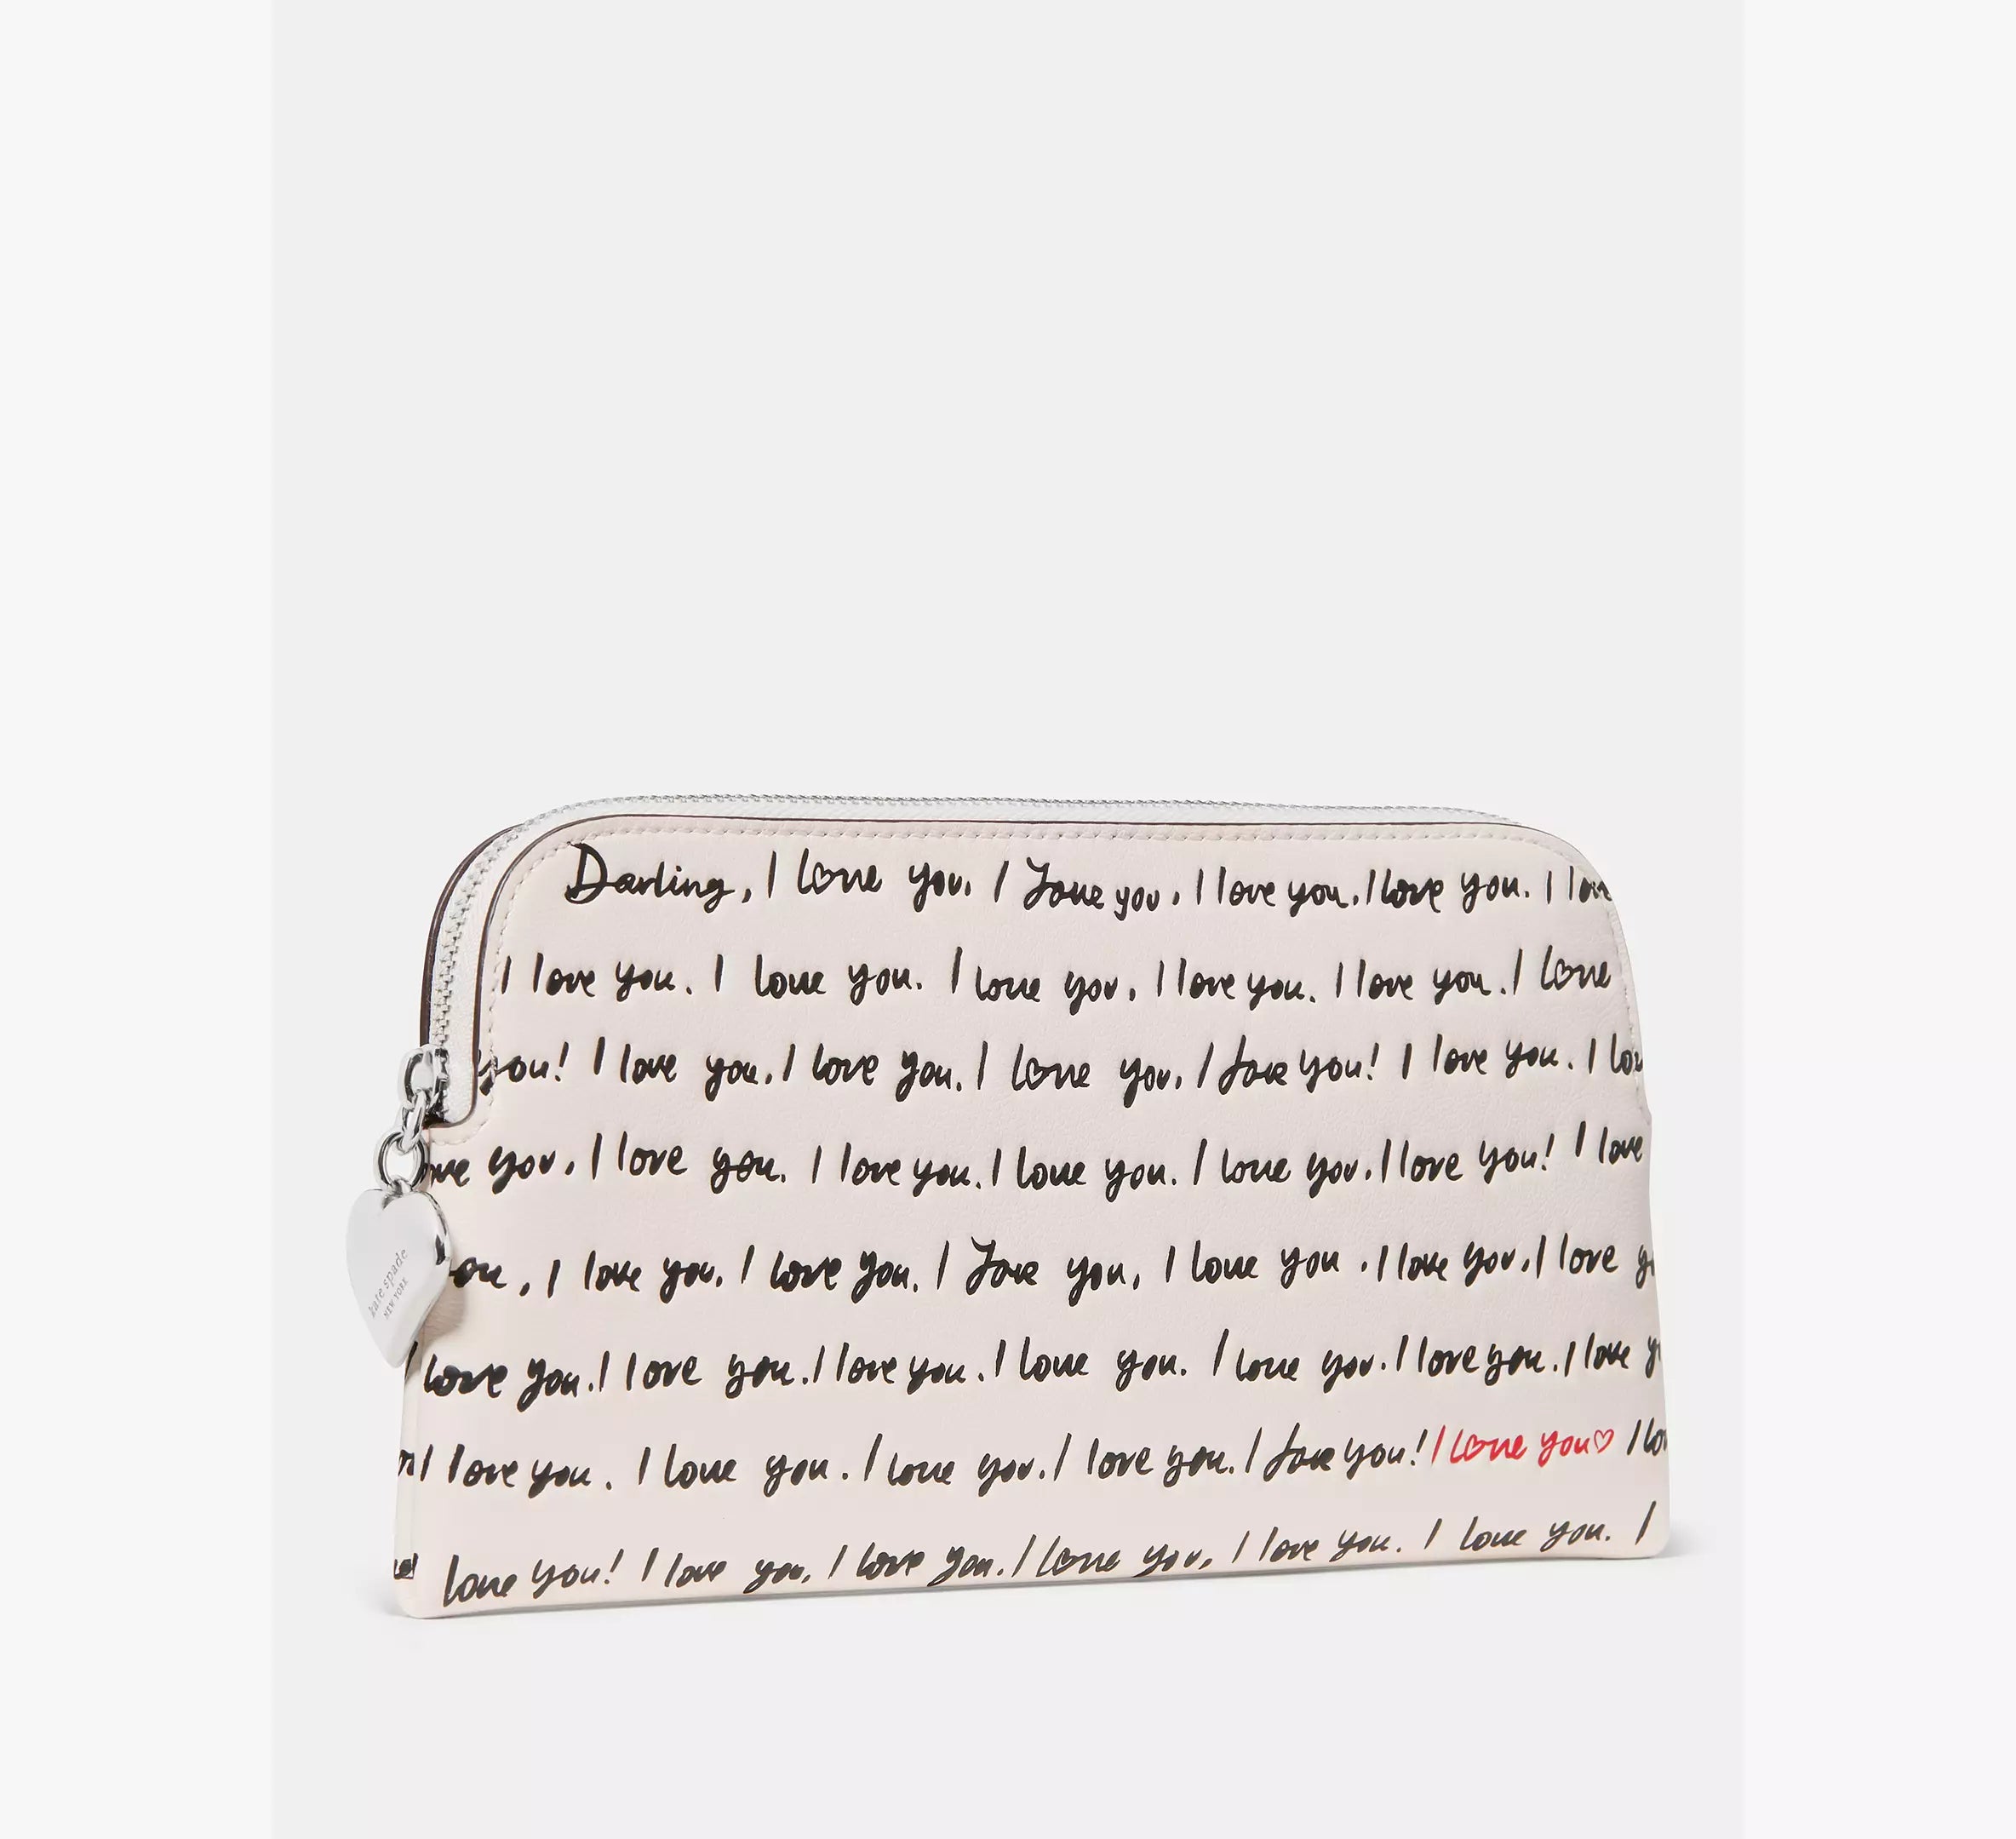 Darling, I love you. I love you. I love you. I love you. I love
I love you. I love you. I love you. I love you. I love you. I love
you! I love you. I love you. I love you. I love you! I love you. I
you. I love you. I love you. I love you. I love you. I love you! I love
I love you. I love you. I love you. I love you. I love you. I love
I love you. I love you. I love you. I love you. I love you. I love you. I love
I love you. I love you. I love you. I love you. I love you! I love you♡ I
love you! I love you. I love you. I love you. I love you. I love you. I
kate spade
NEW YORK